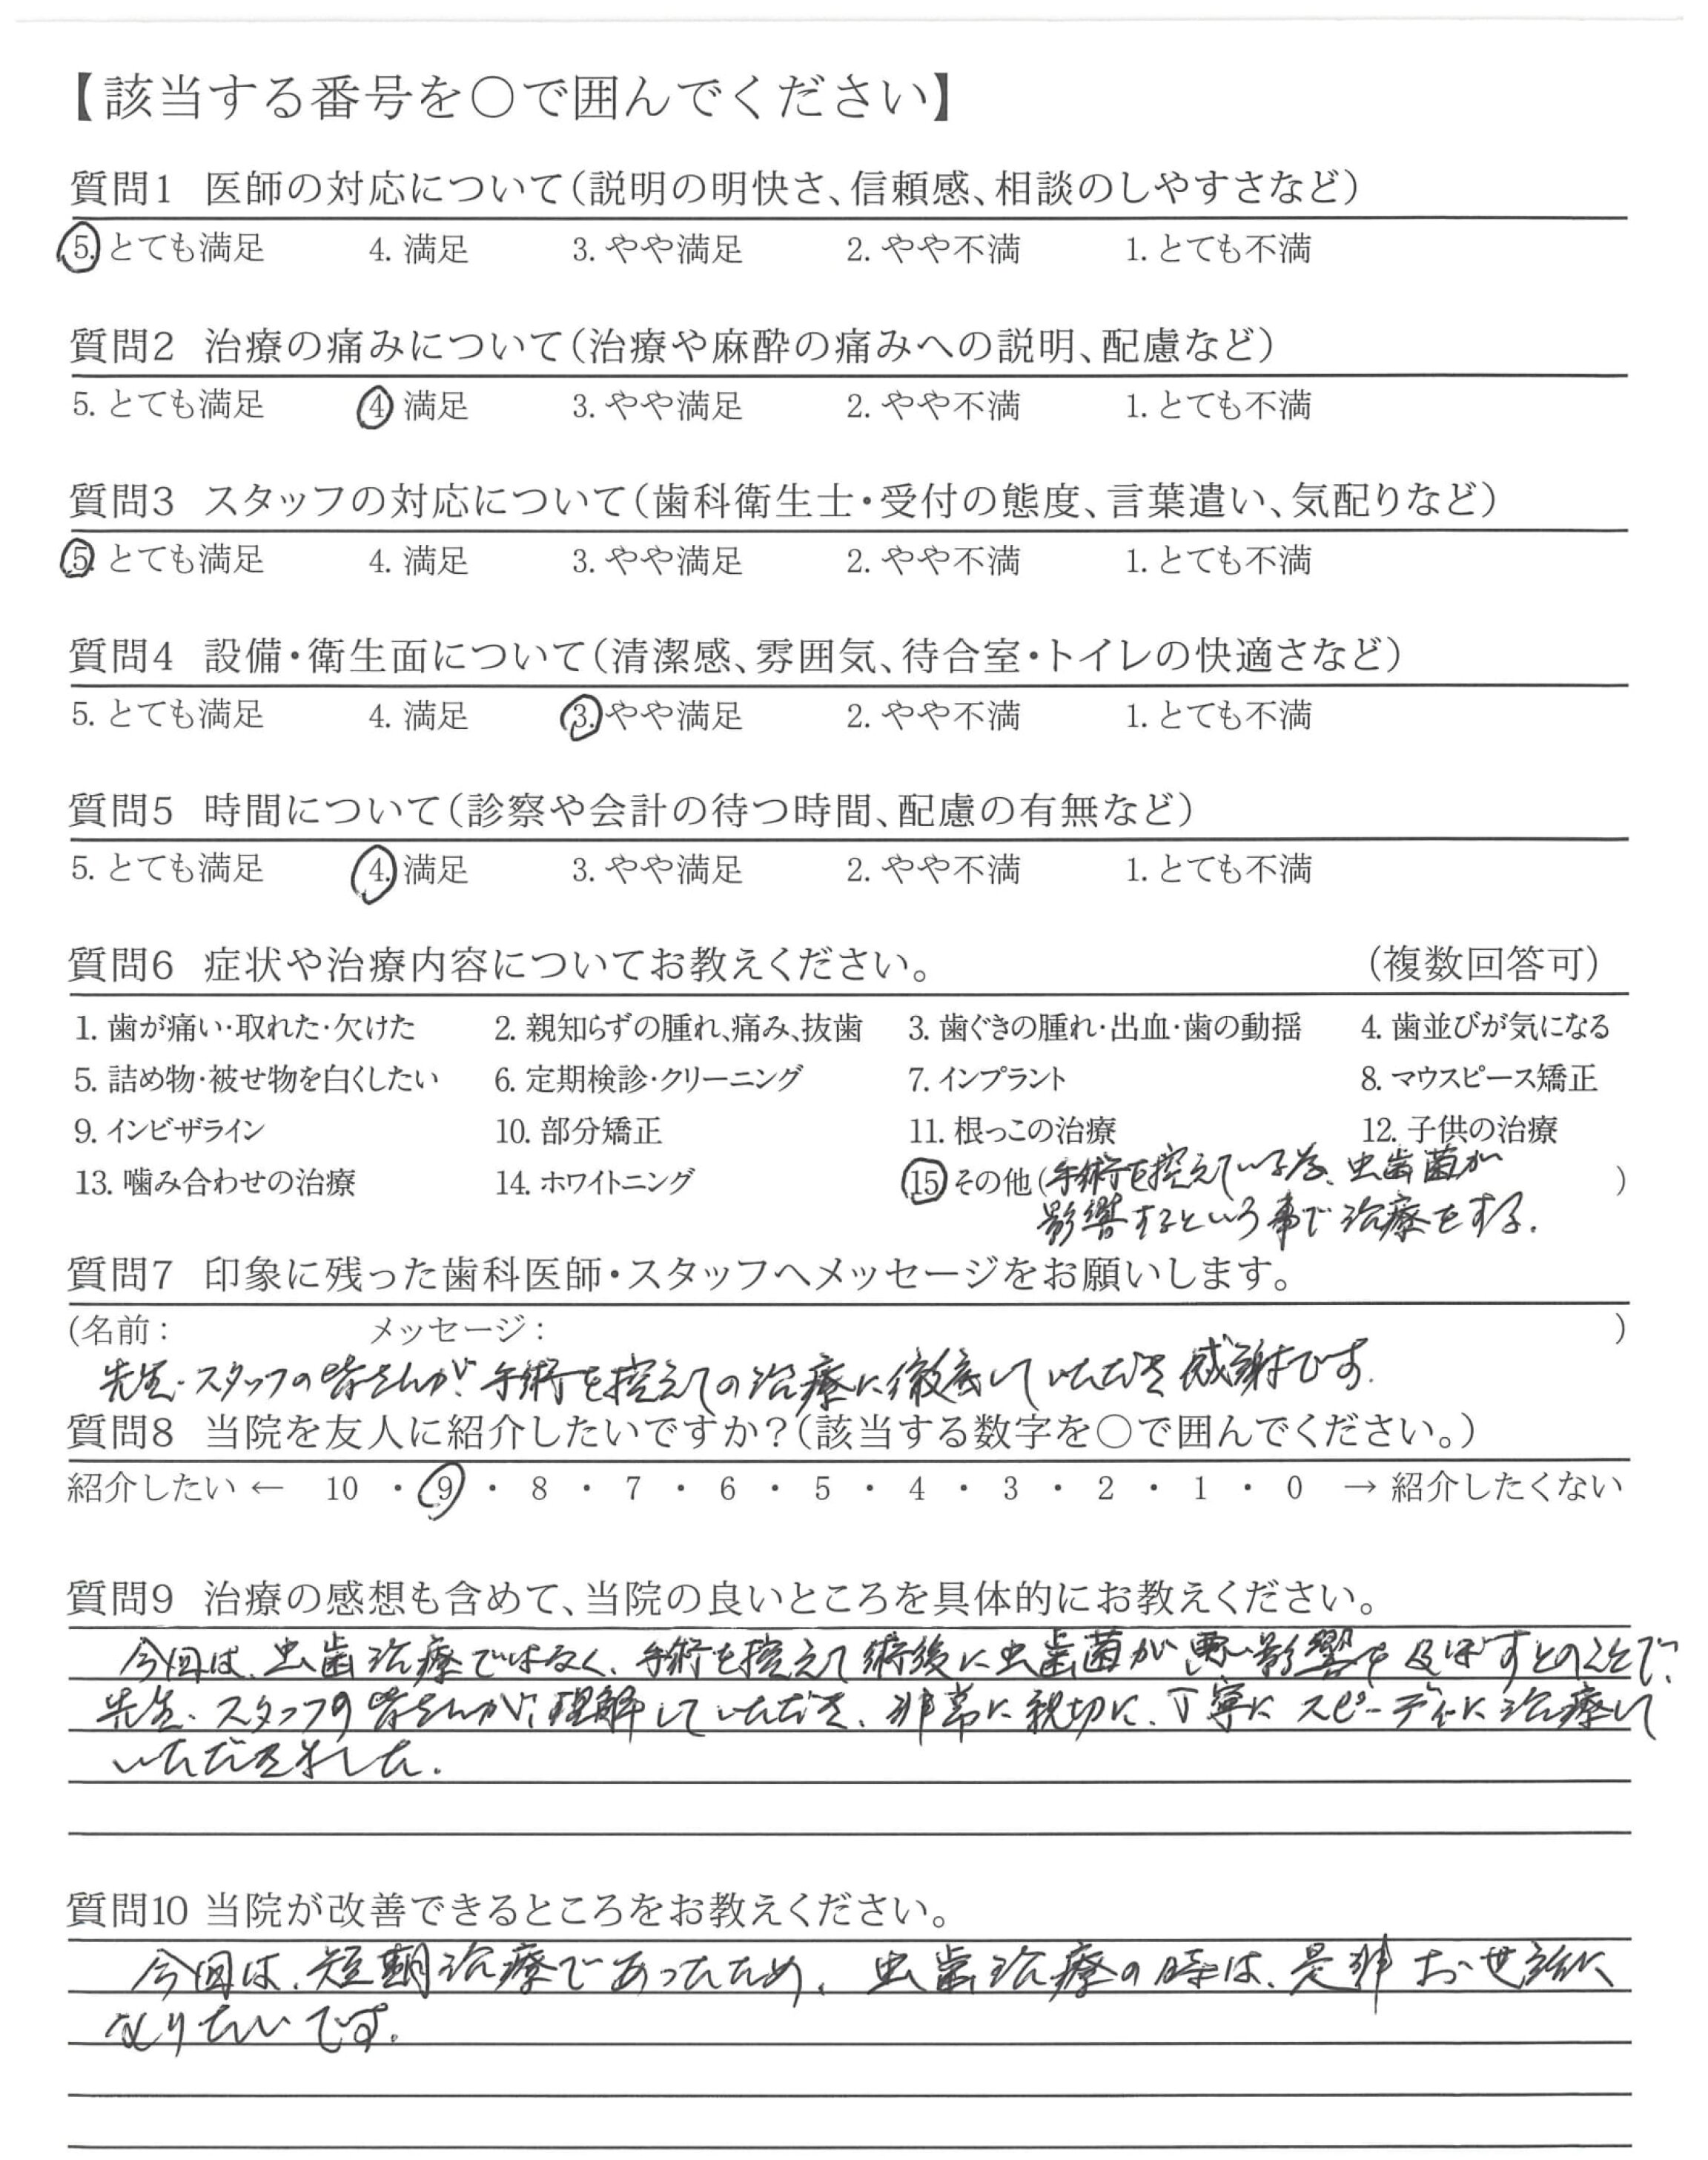 【該当する番号を○で囲んでください】
質問1 医師の対応について(説明の明快さ、信頼感、相談のしやすさなど)
5. とても満足 4. 満足 3. やや満足 2. やや不満 1. とても不満
質問2 治療の痛みについて(治療や麻酔の痛みへの説明、配慮など)
5. とても満足 4 満足 3. やや満足 2. やや不満 1. とても不満
質問3 スタッフの対応について(歯科衛生士・受付の態度、言葉遣い、気配りなど)
5 とても満足 4. 満足 3. やや満足 2. やや不満 1. とても不満
質問4 設備・衛生面について(清潔感、雰囲気、待合室・トイレの快適さなど)
5. とても満足 4. 満足 3. やや満足 2. やや不満 1. とても不満
質問5 時間について(診察や会計の待つ時間、配慮の有無など)
5. とても満足 4. 満足 3. やや満足 2. やや不満 1. とても不満
質問6 症状や治療内容についてお教えください。 (複数回答可)
1. 歯が痛い・取れた・欠けた 2. 親知らずの腫れ、痛み、抜歯 3. 歯ぐきの腫れ・出血・歯の動揺 4. 歯並びが気になる
5. 詰め物・被せ物を白くしたい 6. 定期検診・クリーニング 7. インプラント 8. マウスピース矯正
9. インビザライン 10. 部分矯正 11. 根っこの治療 12. 子供の治療
13. 噛み合わせの治療 14. ホワイトニング 15 その他(手術を控えている為、虫歯菌が )
影響するという事で治療をする。
質問7 印象に残った歯科医師・スタッフへメッセージをお願いします。
(名前: メッセージ: )
先生・スタッフの皆さんが、手術を控えての治療に徹底していただき感謝です。
質問8 当院を友人に紹介したいですか?(該当する数字を○で囲んでください。)
紹介したい ← 10 ・ 9 ・ 8 ・ 7 ・ 6 ・ 5 ・ 4 ・ 3 ・ 2 ・ 1 ・ 0 → 紹介したくない
質問9 治療の感想も含めて、当院の良いところを具体的にお教えください。
今回は、虫歯治療ではなく、手術を控えて術後に虫歯菌が悪い影響を及ぼすとのことで、
先生・スタッフの皆さんが理解していただき、非常に親切に、丁寧にスピーディに治療して
いただきました。
質問10 当院が改善できるところをお教えください。
今回は、短期治療であったため、虫歯治療の時は、是非お世話に
なりたいです。